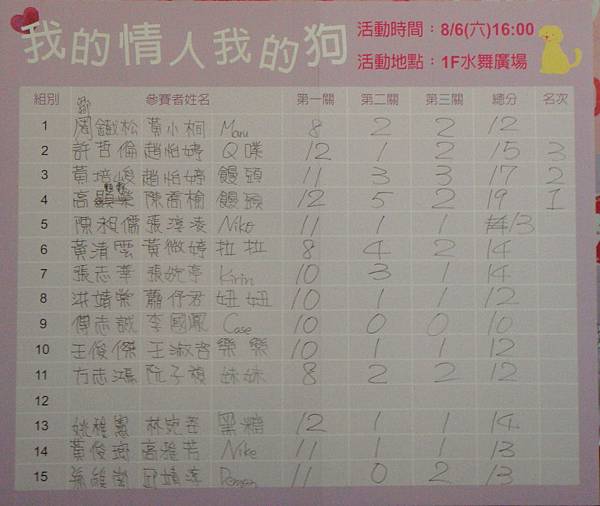 我的情人我的狗
活動時間：8/6(六)16:00
活動地點：1F水舞廣場
組別 參賽者姓名 第一關 第二關 第三關 總分 名次
1 松 黃小桐 Maru 8 2 2 12
2 許哲倫 趙怡婷 Q噗 12 1 2 15 3
3 黃培峻 趙怡婷 饅頭 11 3 3 17 2
4 高 陳喬榆 饅頭 12 5 2 19 1
5 陳 儒 張 凌 Niko 11 1 1 13
6 黃清雲 黃微婷 拉拉 8 4 2 14
7 張志華 張婉亭 Kirin 10 3 1 14
8 洪靖棠 蕭伃君 妞妞 10 1 1 12
9 傅志誠 李國鳳 Case 10 0 0 10
10 王俊傑 王淑 樂樂 10 1 1 12
11 方志鴻 阮子 妹妹 8 2 2 12
12
13 姚 林 黑糖 12 1 1 14
14 黃俊 高雅芳 Nike 11 1 1 13
15 邱靖 11 0 2 13